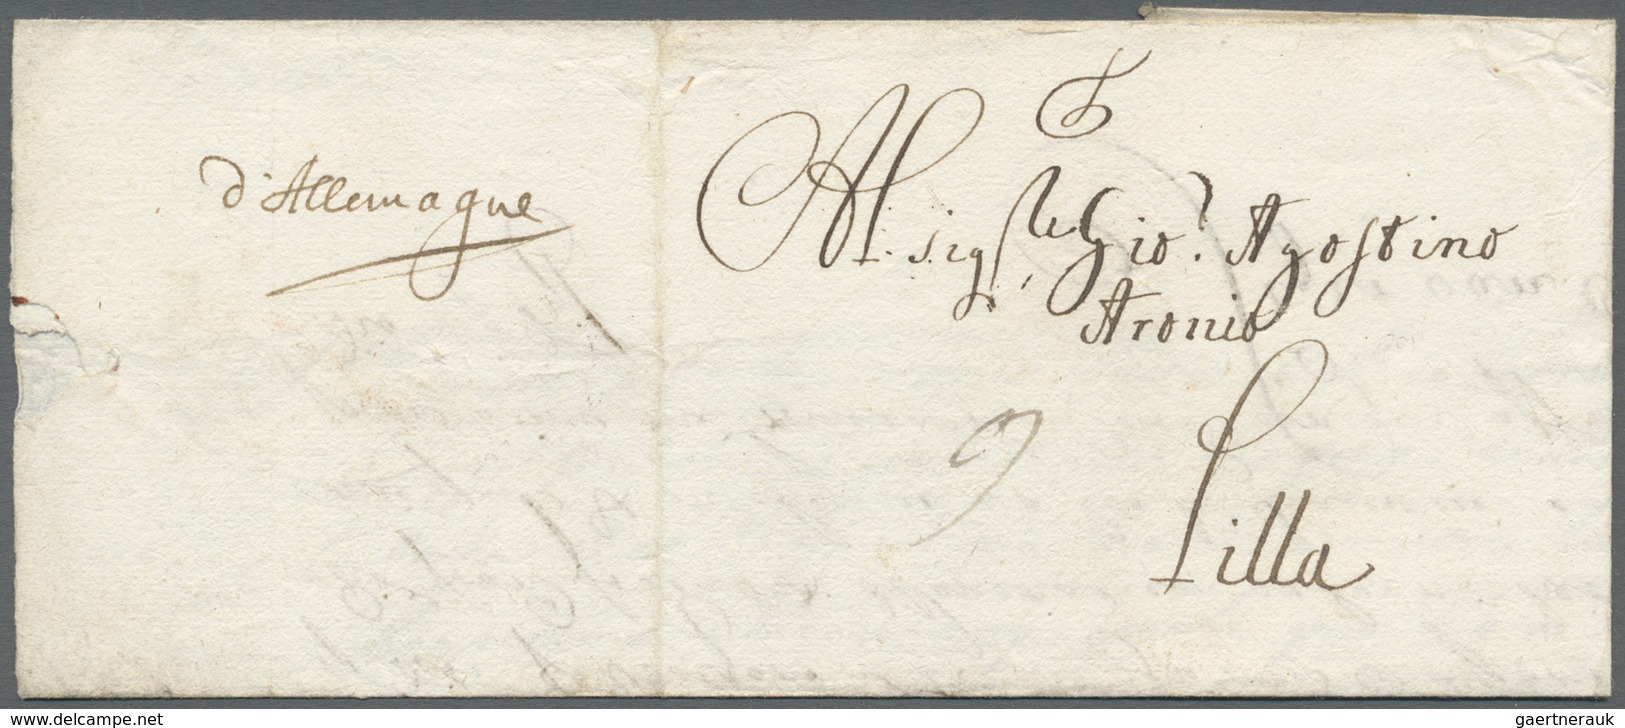 d'Allemagne
Al. sig.re Gio. Agostino
Aronio
9
Lilla
www.delcampe.net
gaertnerauk